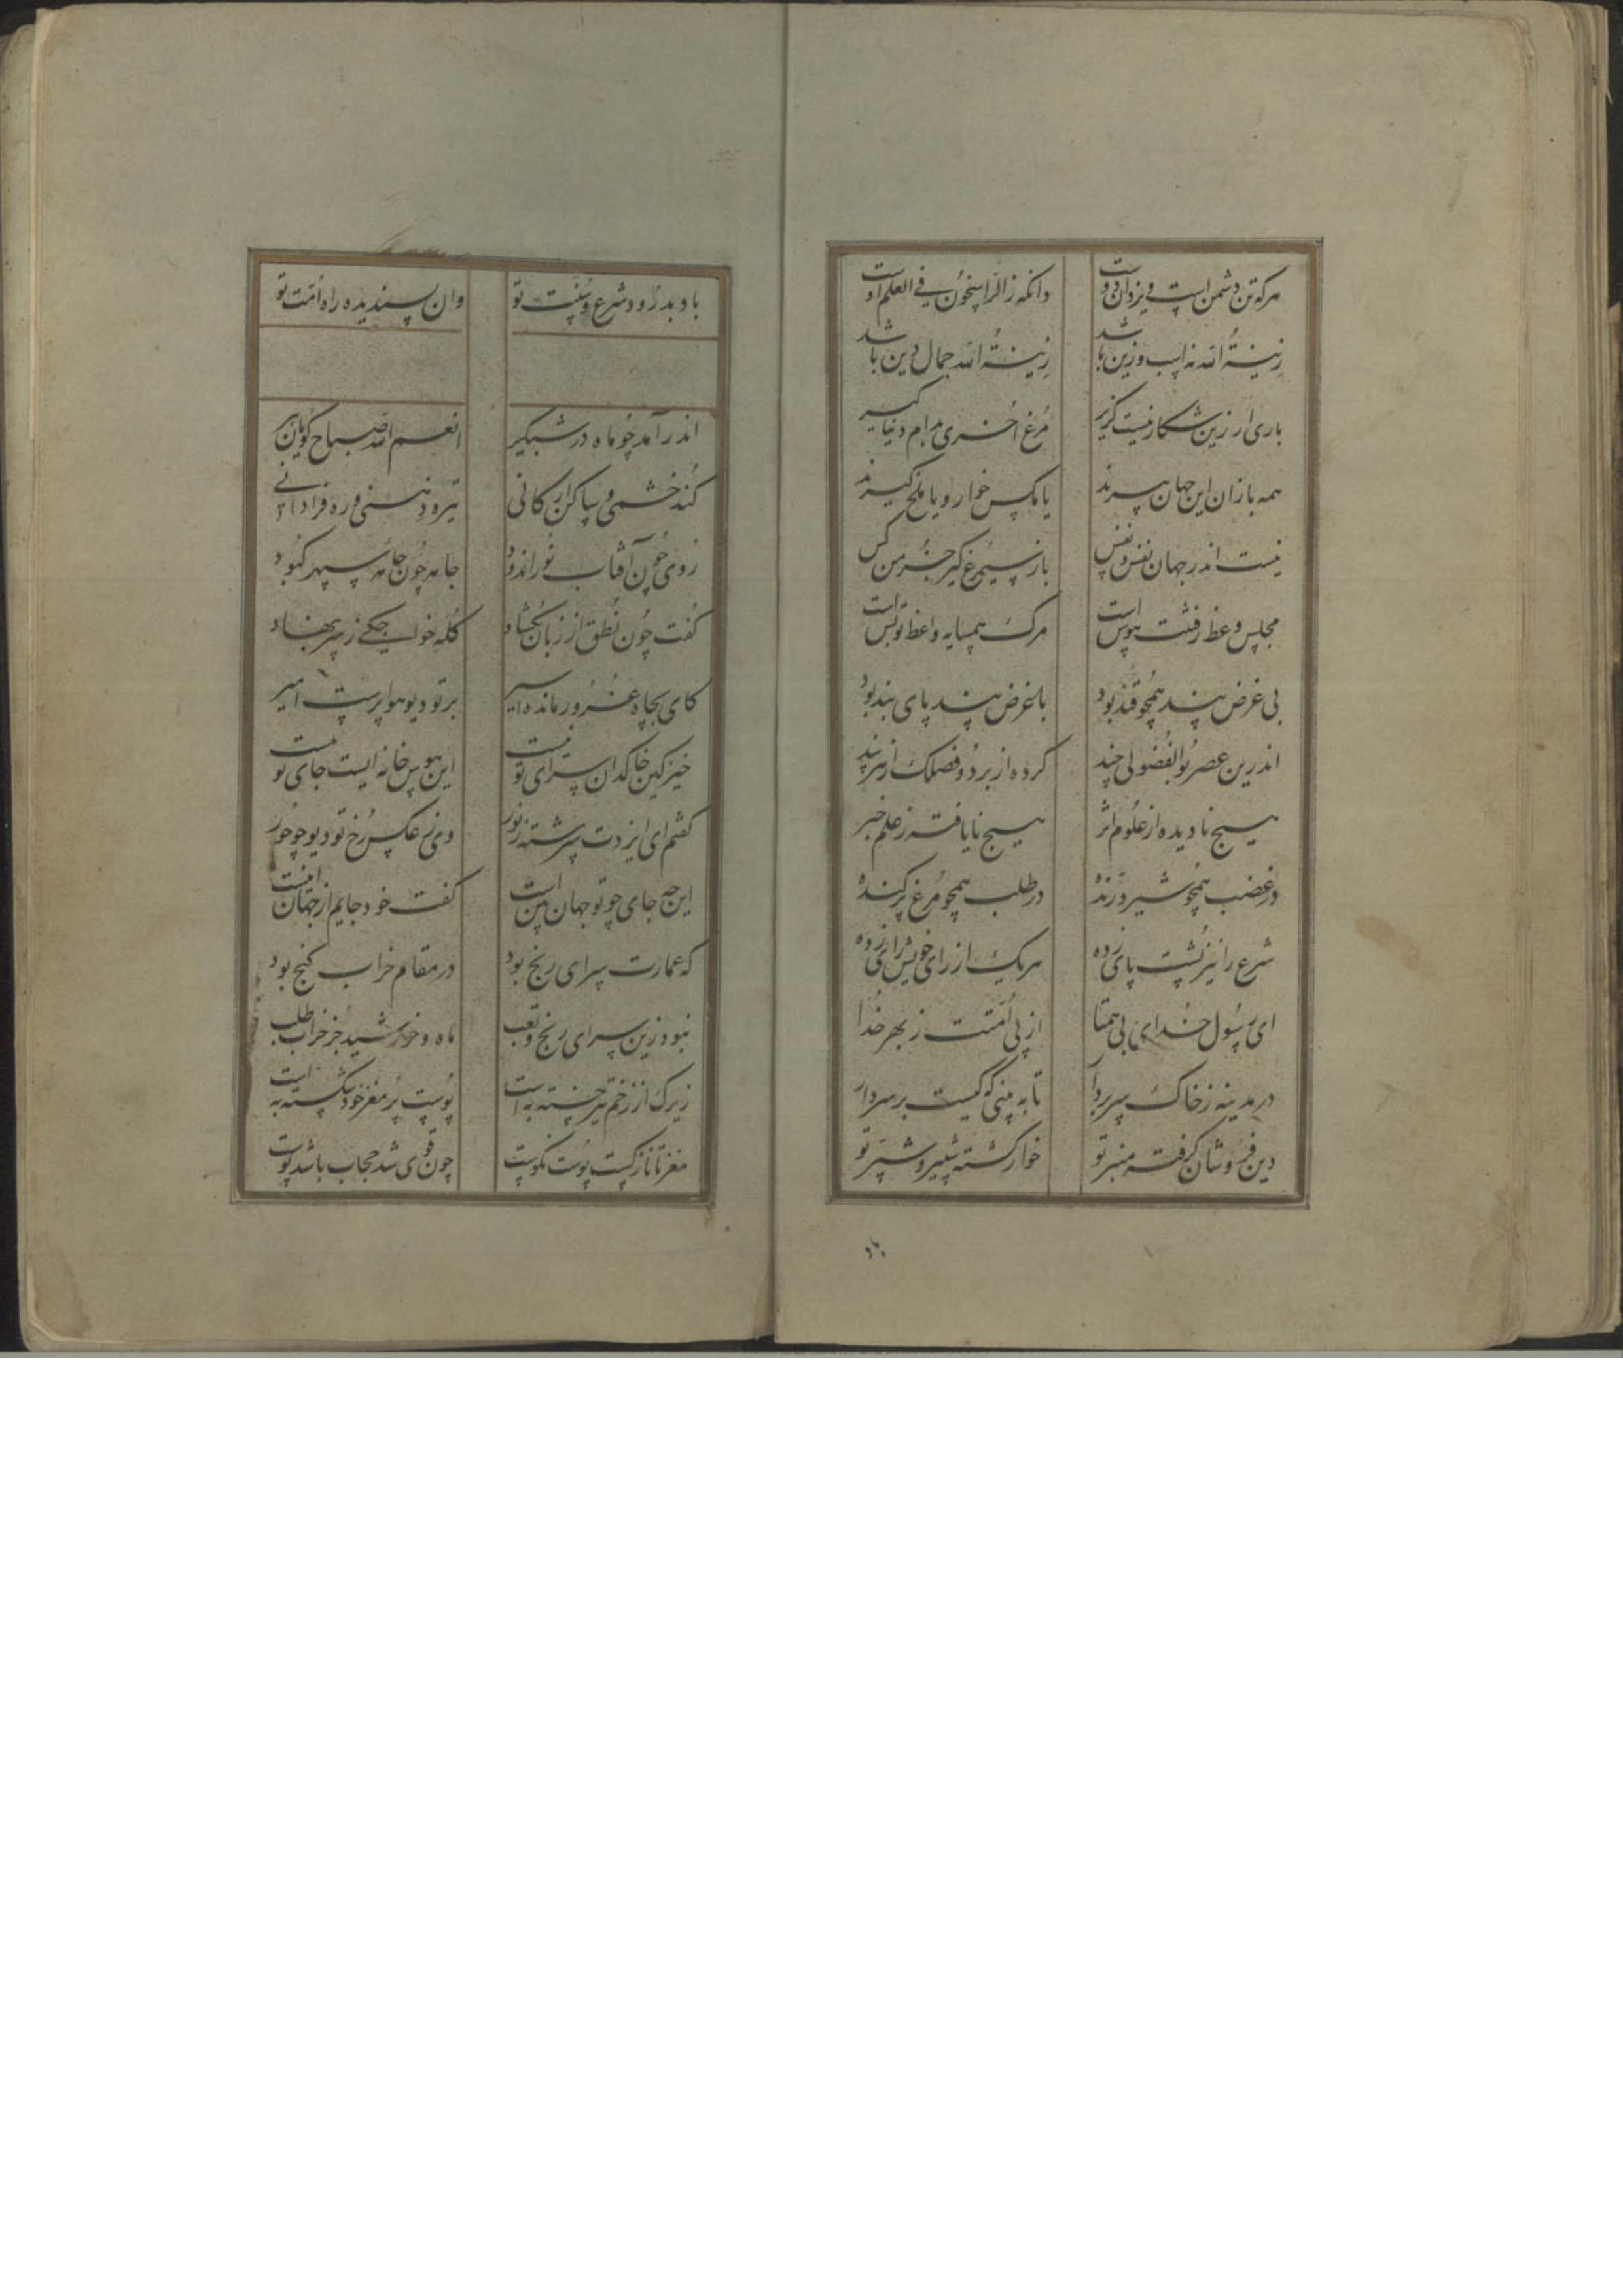 هرکه تن دشمن است و یزدان دوست
دانکه زالراسخون فی العلم اوست
زینة الله نه اسب و زین باشد
زینة الله جمال دین باشد
باری ار زین شکار نیست گزیر
مرغ اخری مدام دنیا گیر
همه بازان این جهان پیرند
یا مگس خوار و یا ملخ گیرند
نیست اندر جهان نفس و نفس
باز سیمرغ گیر جز من کس
مجلس وعظ رفتنت هوس است
مرگ همسایه واعظ تو بس است
بی غرض پند همچو قند بود
با غرض پند پای بند بود
اندرین عصر بوالفضولی چند
کرده از بر دو فصلک از هر پند
هیچ نادیده از علوم اثر
هیچ نایافته ز علم خبر
در غضب همچو شیر درنده
در طلب همچو مرغ پرکنده
شرع را نیز پشت پای زده
هر یک از رای خویش رای زده
ای رسول خدای بی همتا
از پی امتت ز بهر خدا
در مدینه ز خاک سر بردار
تا به بینی که کیست بر سر دار
دین فروشان گرفته منبر تو
خوار گشته شبیر و شبر تو
باد بدرود شرع و سنت تو
وان پسندیده راه امت تو
اندر آمد چو ماه در شبگیر
انعم الله صباح گویان پیر
کند خشمی و سبا کرانی
تیزه و نسنی و ره فرادانی
روی چون آفتاب نوراندود
جامه چون جامه سپهر کبود
گفت چون نطق از زبان بگشاد
کله خواجگی ز سر بنهاد
کای بچاه غرور مانده اسیر
بر تو دیو هواپرست امیر
خیز کین خاکدان سرای تو نیست
این هوس خانه ایست جای تو نیست
گفتم ای ایزدت سرشته ز نور
وی ز عکس رخ تو دیو چو حور
این چه جای چو تو جهان بین است
گفت خود جایم از جهان اینست
که عمارت سرای رنج بود
در مقام خراب گنج بود
نبود زین سرای رنج و تعب
ماه و خورشید جز خراب طلب
زیرک از زخم تیر خسته به است
پوست پر مغز خود شکسته به است
مغز تا نازکست پوست نکوست
چون قوی شد حجاب باشد پوست
باد